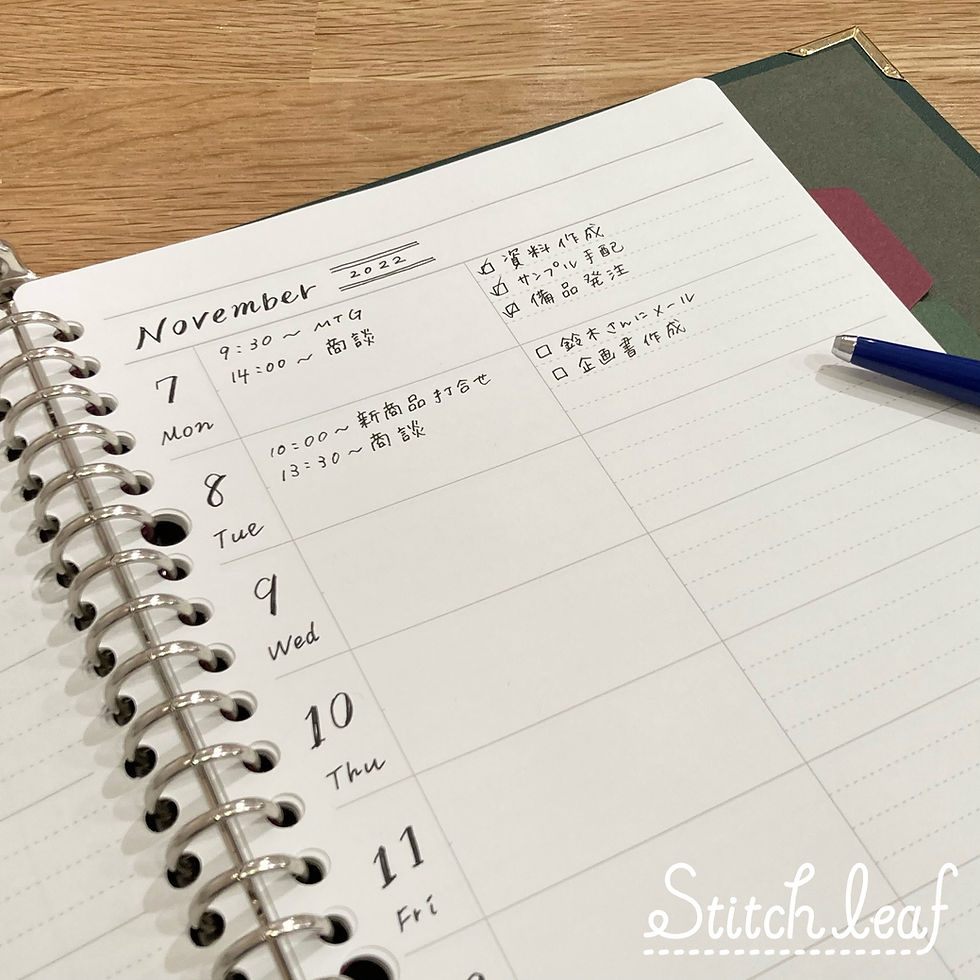 November 2022
7
Mon
9:30～ MTG
14:00～ 商談
資料作成
サンプル手配
備品発注
8
Tue
10:00～新商品打合せ
13:30～商談
鈴木さんにメール
企画書作成
9
Wed
10
Thu
11
Fri
Stitch leaf